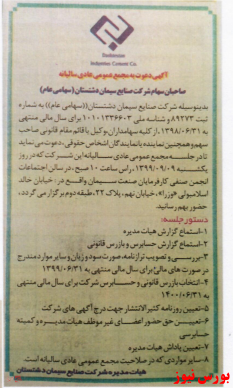 Dashtestan
Industries Cement Co.
آگهی دعوت به مجمع عمومی عادی سالیانه
صاحبان سهام شرکت صنایع سیمان دشتستان (سهامی عام)
بدینوسیله شرکت صنایع سیمان دشتستان ((سهامی عام)) به شماره
ثبت ۸۹۲۷۳ و شناسه ملی ۱۰۱۰۱۳۳۶۶۰۳ برای سال مالی منتهی
به ۱۳۹۸/۰۶/۳۱ از کلیه سهامداران یا وکیل یا قائم مقام قانونی صاحب
سهم و همچنین نماینده یا نمایندگان اشخاص حقوقی، دعوت می نماید
تا در جلسه مجمع عمومی عادی سالیانه این شرکت که در روز
یکشنبه ۱۳۹۸/۰۹/۰۹ راس ساعت ۱۰ صبح، در سالن اجتماعات
انجمن صنفی کارفرمایان صنعت سیمان واقع در: خیابان خالد
اسلامبولی "وزراء"، خیابان نهم، پلاک ۲۲، طبقه دوم برگزار می گردد،
حضور بهم رسانید.
دستور جلسه:
۱-استماع گزارش هیات مدیره
۲-استماع گزارش حسابرس و بازرس قانونی
۳-بررسی و تصویب ترازنامه، صورت سود و زیان و سایر موارد مندرج
در صورت های مالی برای سال مالی منتهی به ۱۳۹۸/۰۶/۳۱
۴-انتخاب بازرس قانونی و حسابرس شرکت برای سال مالی منتهی
به
۵-تعیین روزنامه کثیر الانتشار جهت درج آگهی های شرکت
۶-تعیین حق حضور اعضای غیر موظف هیات مدیره و کمیته
حسابرسی
۷-تعیین پاداش هیات مدیره
۸-سایر مواردی که در صلاحیت مجمع عمومی عادی سالیانه است.
هیات مدیره شرکت صنایع سیمان دشتستان
بورس نیوز